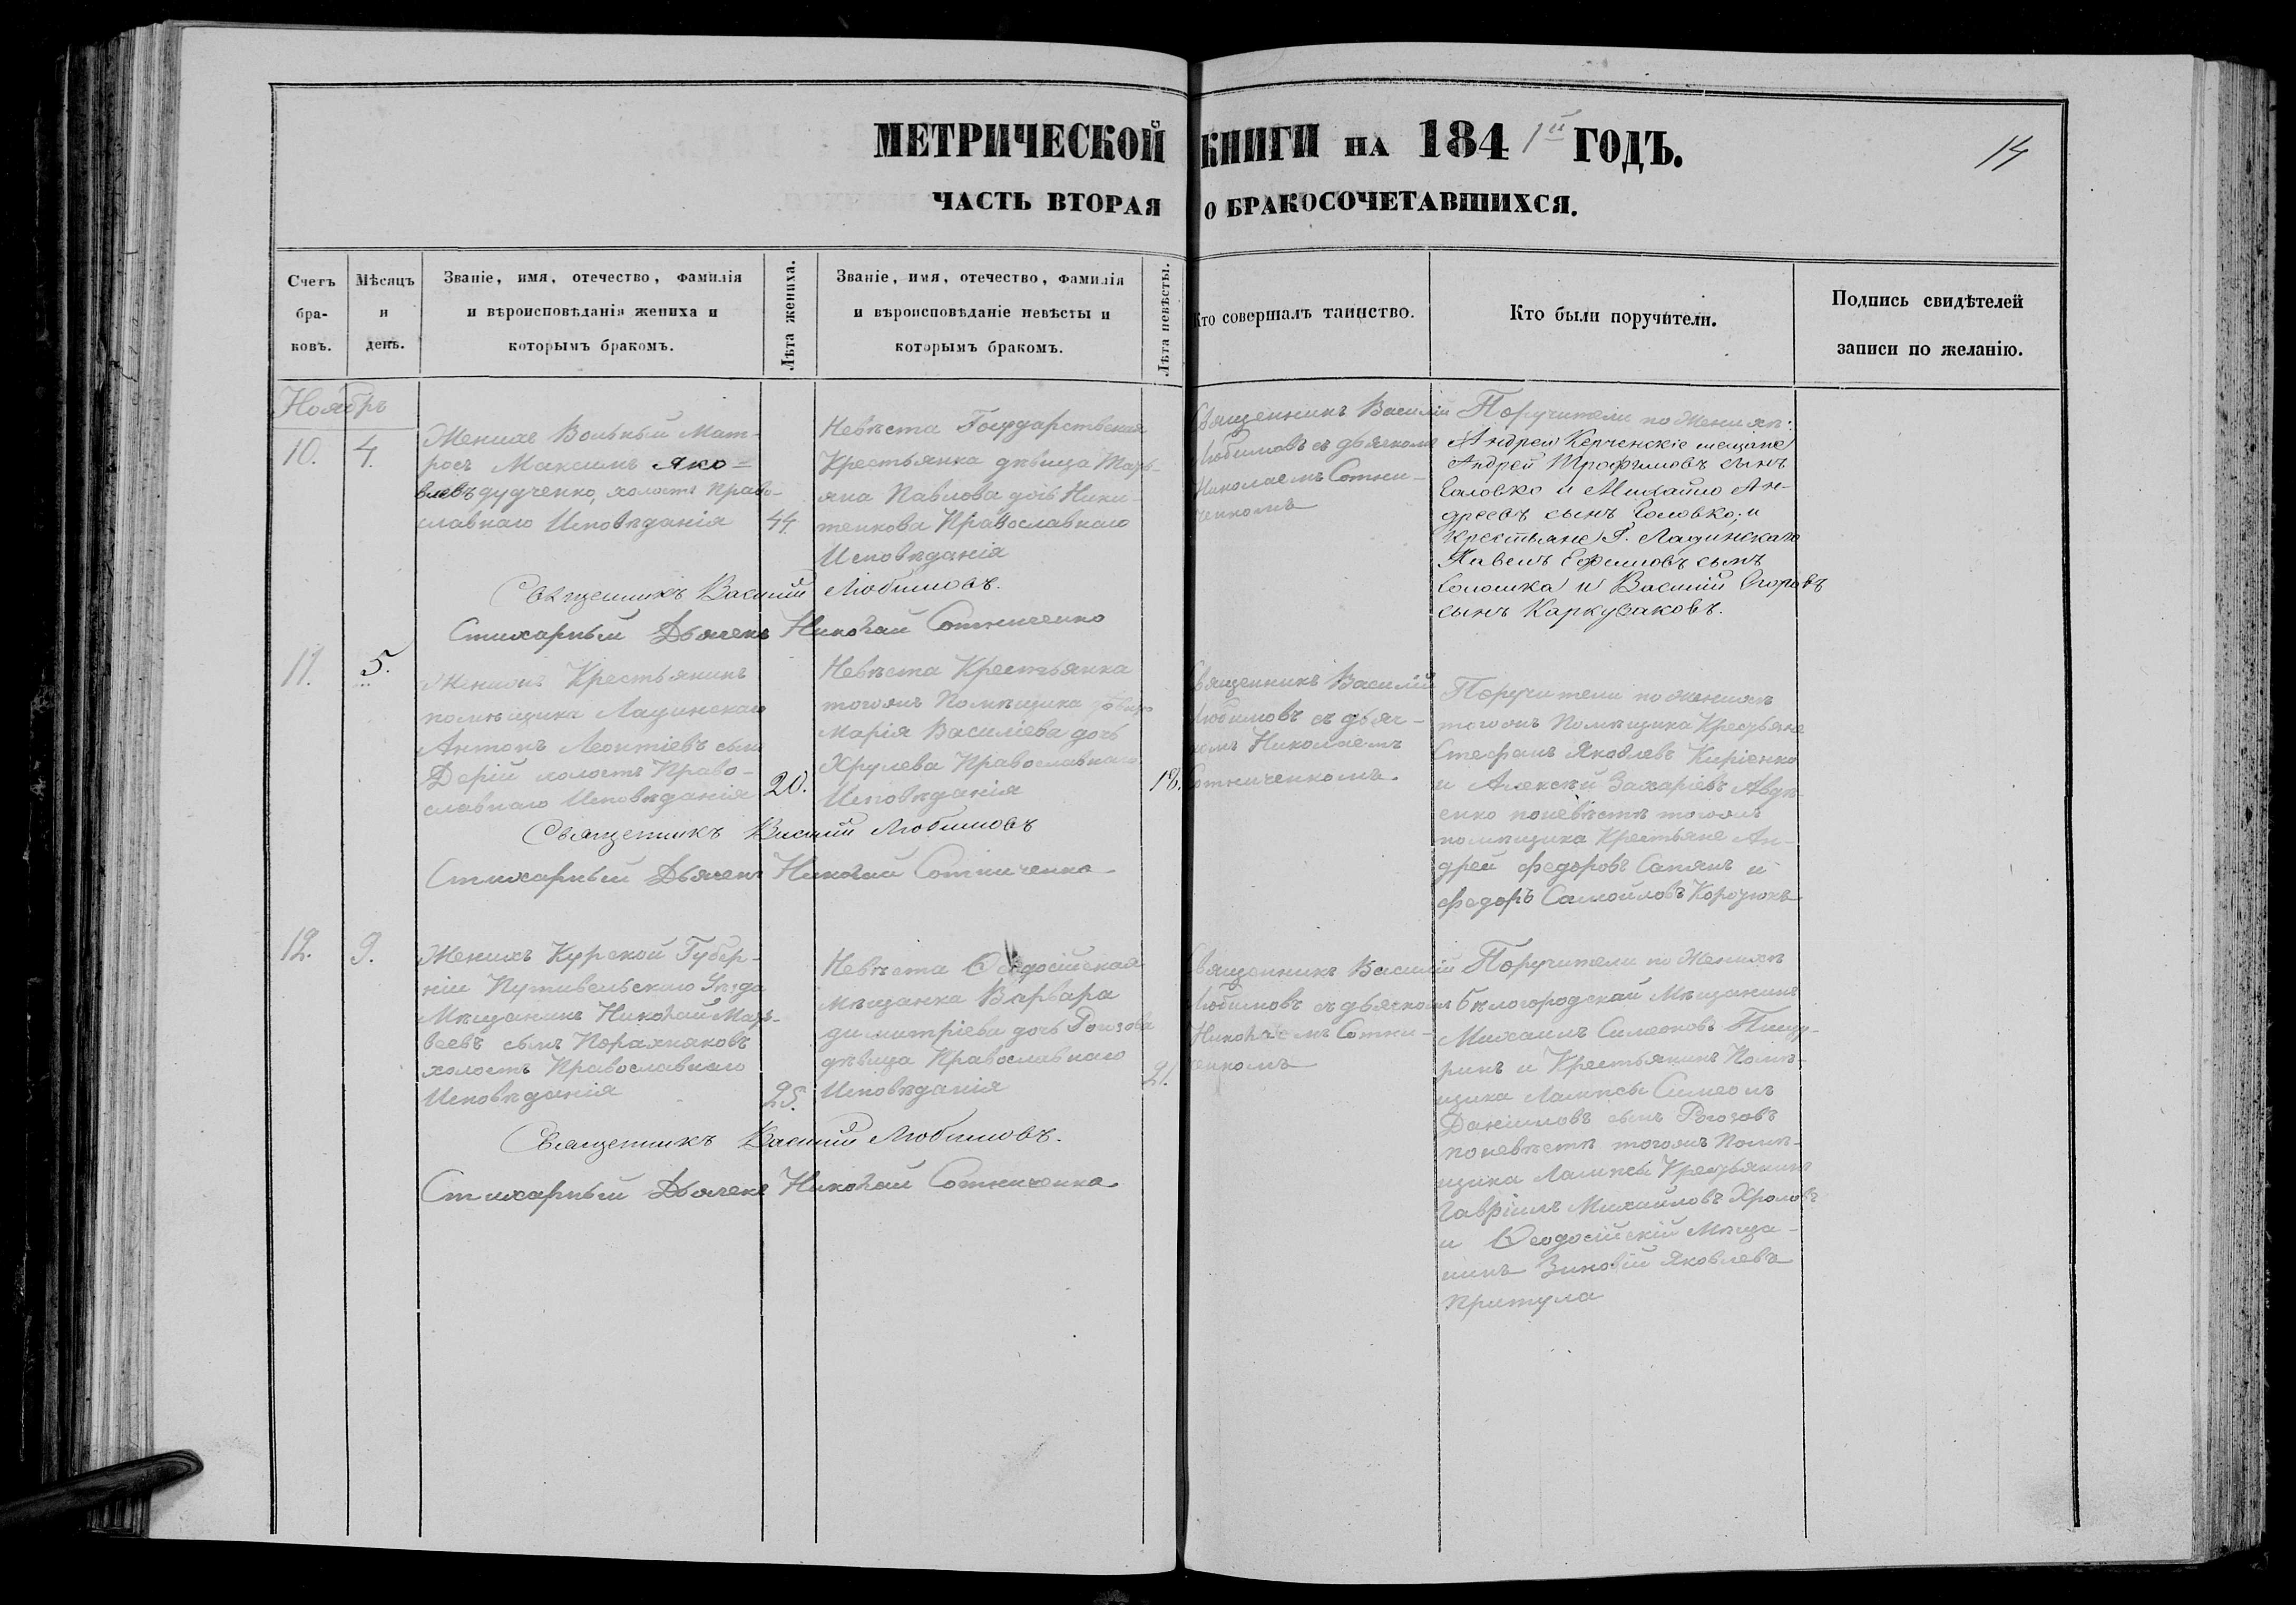 МЕТРИЧЕСКОЙ КНИГИ НА 184 1й ГОДЪ.
14
ЧАСТЬ ВТОРАЯ О БРАКОСОЧЕТАВШИХСЯ.
Счетъ бра- ковъ.
Мѣсяцъ и день.
Званіе, имя, отечество, фамилія
и вѣроисповѣданія жениха и
которымъ бракомъ.
Лѣта жениха.
Званіе, имя, отечество, фамилія
и вѣроисповѣданіе невѣсты и
которымъ бракомъ.
Лѣта невѣсты.
Кто совершалъ таинство.
Кто были поручители.
Подпись свидѣтелей
записи по желанію.
Ноябрь
10.
4.
Женихъ Вольный Мат-
росъ Максимъ Яко-
влевъ дудченко, холостъ Право-
славнаго Исповѣданія
44.
Невѣста Государственная
Крестьянка дѣвица
Павлова дочь Ники-
тенкова Православнаго
Исповѣданія
Священникъ Василій
Любимовъ съ дьячкомъ
Николаемъ Сотни-
ченкомъ
Поручители по Женихѣ:
Андрей Керченскіе мещане
Андрей Трофимовъ сынъ
Головко и Михайло Ан-
дреевъ сынъ Головко; и
Крестьяне Г. Лагинскаго
Павелъ Ефимовъ сынъ
Соломка и Василій Егоровъ
сынъ Каркузаковъ.
Священникъ Василій Любимовъ.
Стихарный Дьячекъ Николай Сотниченко
11.
5.
Женихъ Крестьянинъ
помѣщика Лагинскаго
Антонъ Леонтіевъ сынъ
холостъ Право-
славнаго Исповѣданія
20.
Невѣста Крестьянка
тогожъ Помѣщика дѣвица
Марія Василіева дочь
Хрулева Православнаго
Исповѣданія
18.
Священникъ Василій
Любимовъ съ дьяч-
комъ Николаемъ
Сотниченкомъ.
Поручители по Женихѣ
тогожъ Помѣщика Крестьяне
Стефанъ Яковлевъ Киріенко
и Алексѣй Захаріевъ Авдѣ-
енко по невѣстѣ тогожъ
помѣщика Крестьяне Ан-
дрей Федоровъ Сапянъ и
Федоръ Самойловъ
Священникъ Василій Любимовъ
Стихарный Дьячекъ Николай Сотниченко
12.
9.
Женихъ Курской Губер-
ніи Путивельскаго Уѣзда
Мѣщанинъ Николай Матъ-
веевъ сынъ
холостъ Православнаго
Исповѣданія
25.
Невѣста Ѳеодосійская
мѣщанка Варвара
димитріева дочь Рогозова
дѣвица Православнаго
Исповѣданія
21.
Священникъ Василій
Любимовъ съ дьячкомъ
Николаемъ Сотни-
ченкомъ
Поручители по Женихѣ
бѣлогородскай Мѣщанинъ
Михаилъ Симеоновъ
и Крестьянинъ Помѣ-
щика Лампси Симеонъ
Даніиловъ сынъ Рогозовъ
по невѣстѣ тогожъ Помѣ-
щика Лампси Крестьянинъ
Гавріилъ Михайловъ Хроловъ
и Ѳеодосійскій Мѣща-
нинъ Зиновій Яковлевъ
Притула
Священникъ Василій Любимовъ.
Стихарный Дьячекъ Николай Сотниченко